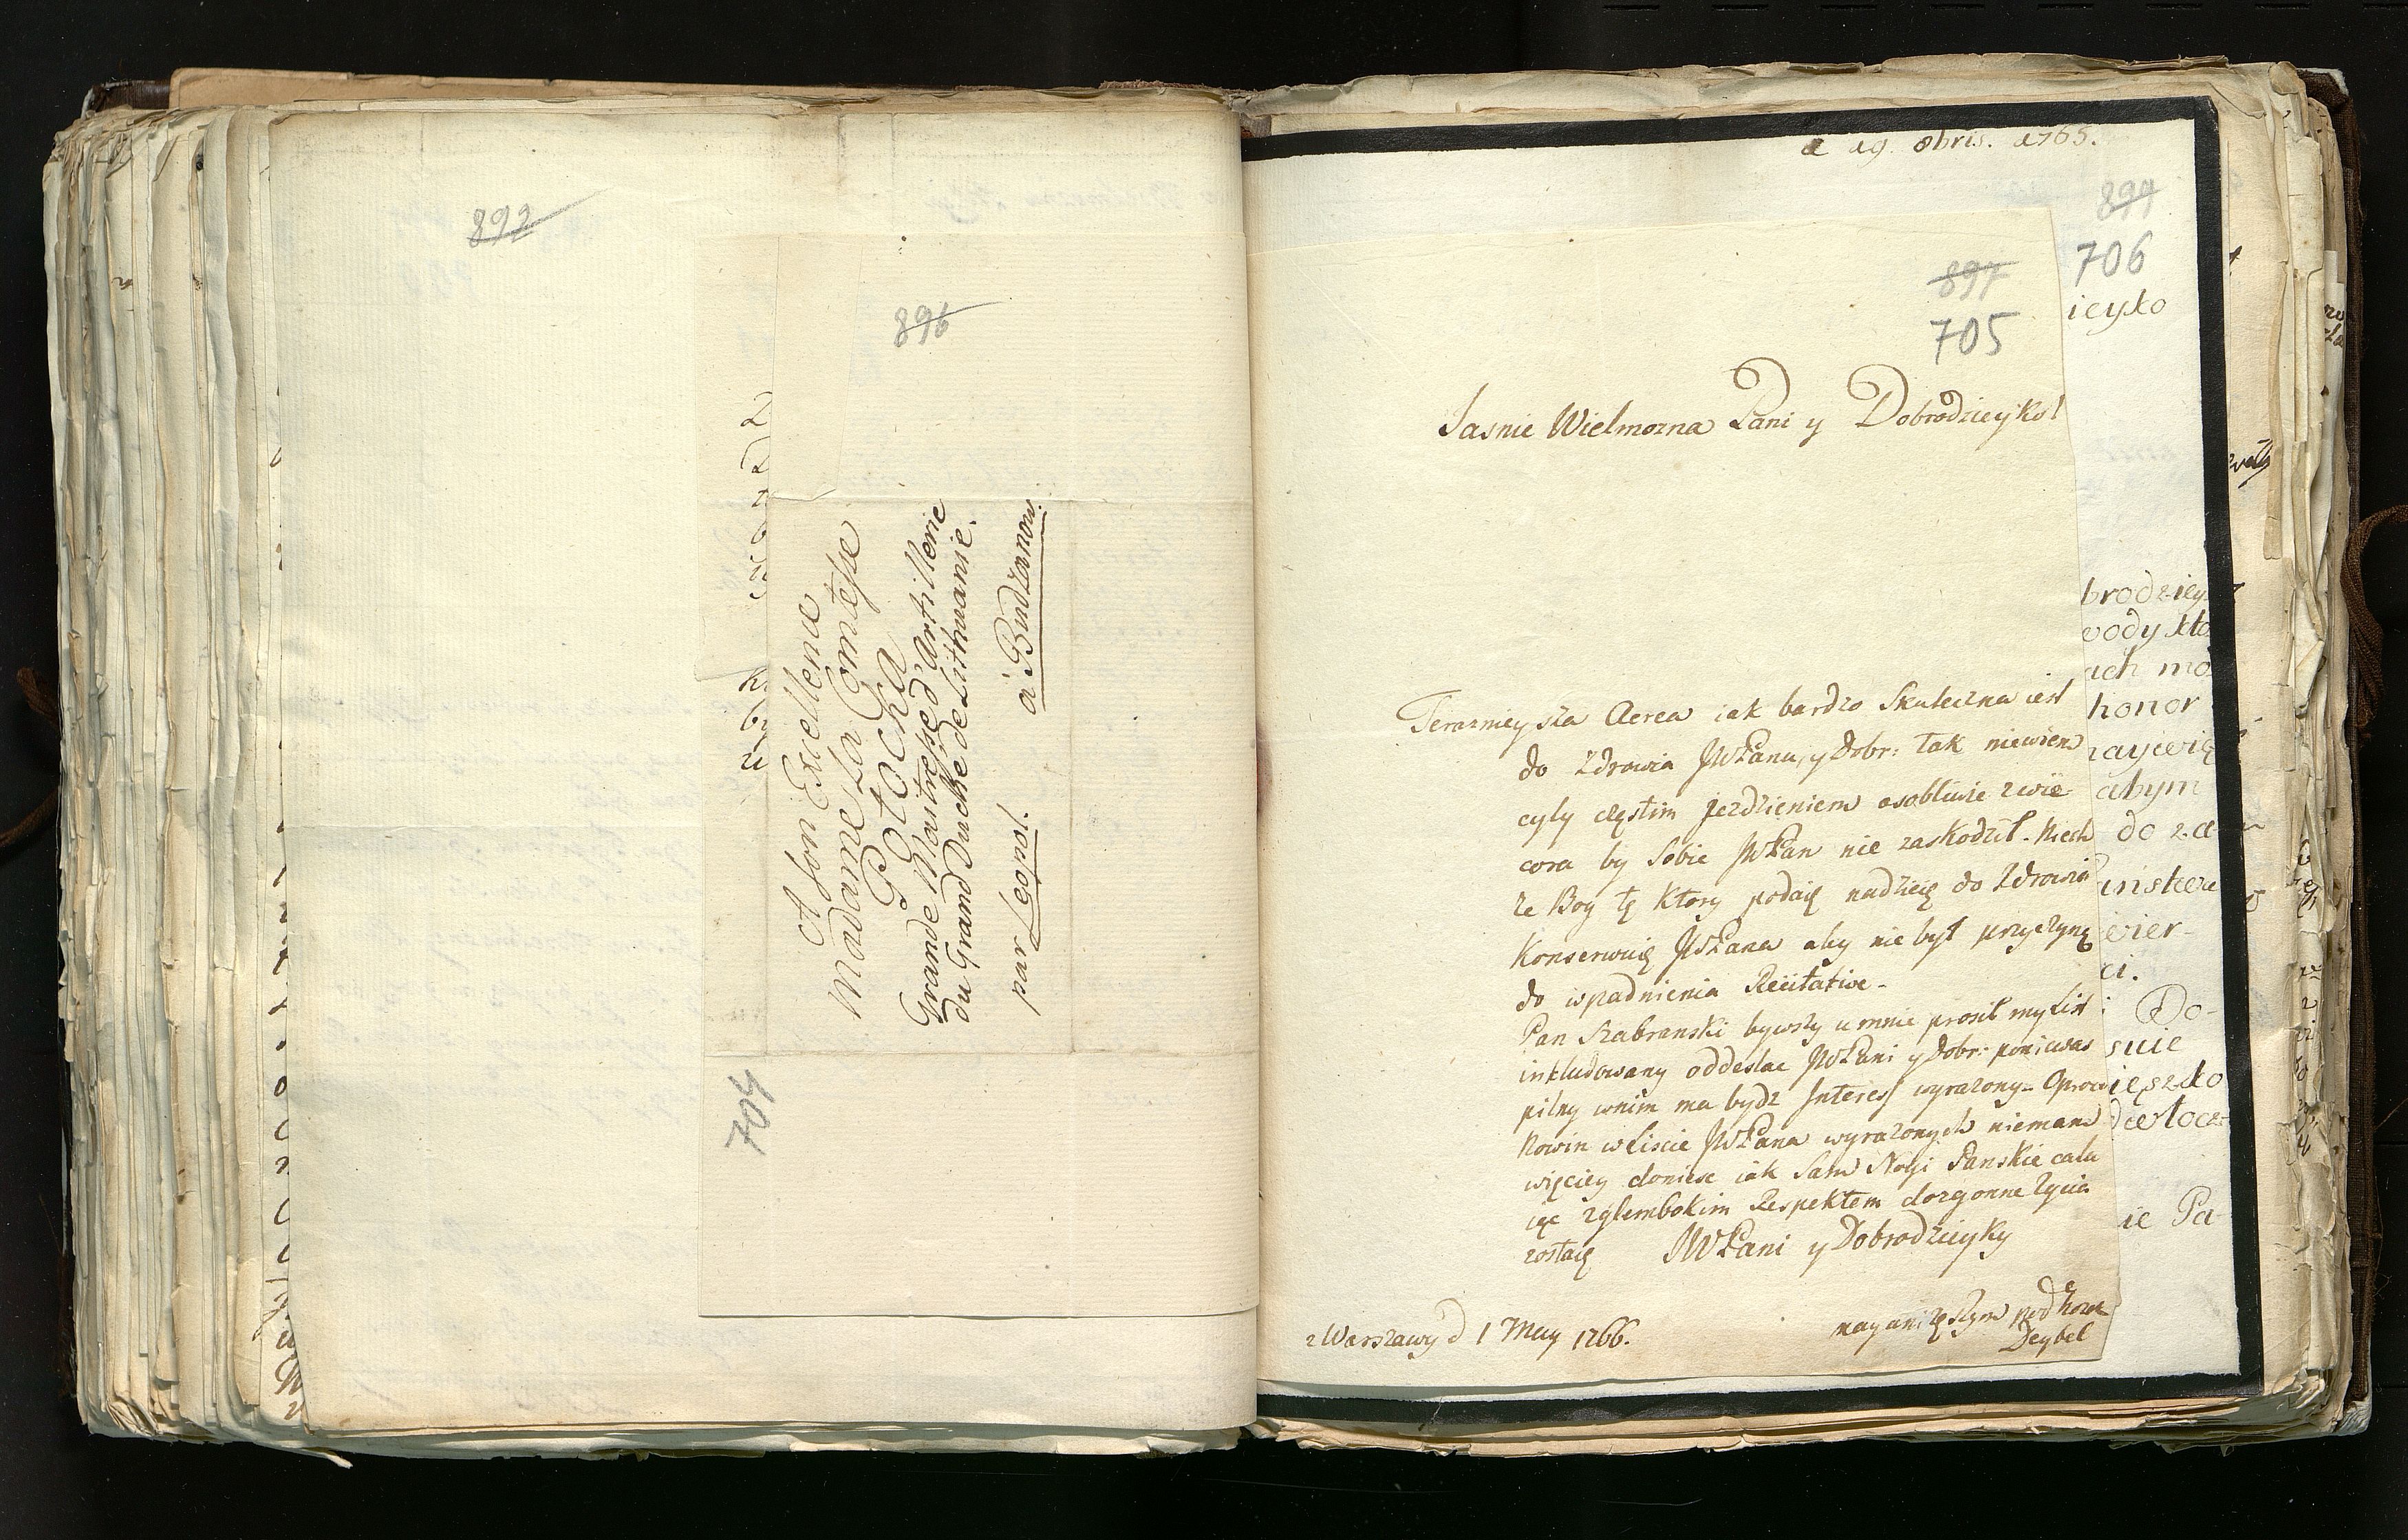 892
896
A Son Excellence
Madame La Comtesse
Potocka
Grande Maitresse d'Artillerie
du Grand Duché de Lithuanie.
par Leopol. à Budzanow.
704
a 19. 8bris. 1765.
899
706
897
705
ieyko
Jasnie Wielmozna Pani y Dobrodzieyko!
Teraznieysza Aerea iak bardzo Skuteczna iest
do Zdrowia JWPana, y Dobr: tak niewiem
cyly częstim jezdzieniem osobliwie zwie-
cora by Sobie JWPan nie zaskodzil. Niech
ze Bog tę Ktory podaię nadzieię do Zdrowia
Konserwuię JWPana aby nie był przyczynę
do wpadnienia Recitatiwe.
Pan Szabranski bywszy u mnie prosil my List
inkludowany oddeslac JWPani y Dobr: poniewas
pilny wnim ma bydz Interess wyrazony. Oprocz
Nowin w Liscie JWPana wyrazonych niemam
więciey doniesc iak Sam Nogi Panskie calu
iąc zglembokim Respektem dozgonne Zycia
zostaię JWPani y Dobrodzieyky
z Warszawy d 1 May 1766.
nayaniższym podnozk
Deybel
brodziey
wody kto
ach mo
honor
naywię
abym
do za
inskeu
wier-
ci.
Do-
suie
ięszko
ie Pa-